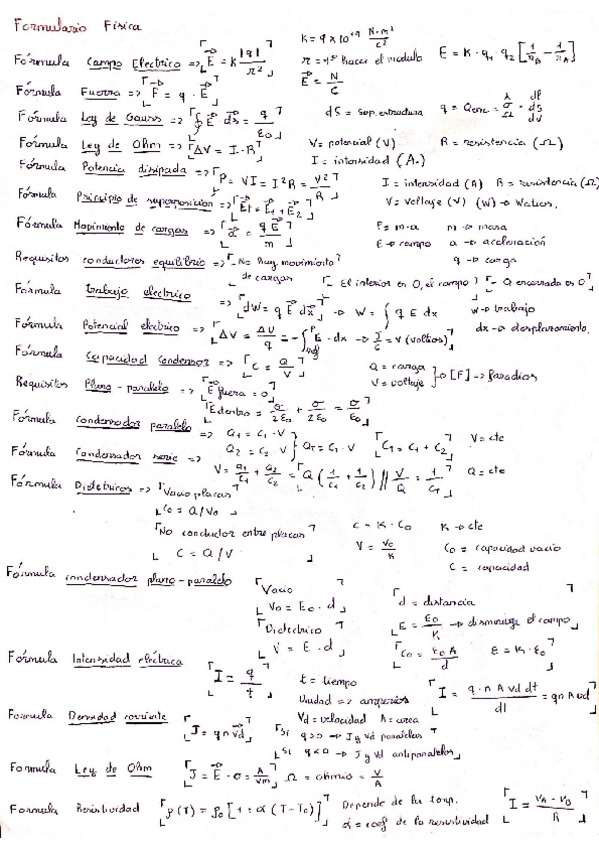 Formulario Física
Fórmula Campo Electrico => E⃗ = K |q| / r²
K = 9 x 10⁺⁹ N·m² / C²
r = hacer el modulo
E⃗ = N / C
E = K · q₁ q₂ [1/r_B - 1/r_A]
Fórmula Fuerza => F⃗ = q · E⃗
Fórmula Ley de Gauss => ∮ E⃗ ds⃗ = q / ε₀
ds = sup. estructura q = Qenc = dl ds dv
Fórmula Ley de Ohm => ΔV = I · R
V = potencial (V) R = resistencia (Ω)
I = intensidad (A.)
Fórmula Potencia disipada => P = VI = I²R = V² / R
I = intensidad (A) R = resistencia (Ω)
V = voltaje (V) (W) → Watios.
Fórmula Principio de superposicion => E⃗t = E⃗₁ + E⃗₂
Fórmula Movimiento de cargas => a⃗ = q E⃗ / m
F = m·a m → masa
E → campo a → aceleración
q → carga
Requisitos conductores equilibrio => - No hay movimiento de cargas
- El interior es 0, el campo
- Q encerrada es 0
Fórmula trabajo electrico => dW = q E⃗ dx⃗ → W = ∫ q E dx
W → trabajo
dx → desplazamiento.
Fórmula Potencial electrico => ΔV = ΔU / q = - ∫ E · dx → J / C = V (voltios)
Fórmula Capacidad Condensor => C = Q / V
Q = carga
V = voltaje
→ [F] → faradios
Requisitos Plano - paralelo => E⃗ fuera = 0
E dentro = σ / 2ε₀ + σ / 2ε₀ = σ / ε₀
Fórmula condensador paralelo => Q₁ = C₁ · V
Q₂ = C₂ V } QT = CT · V
CT = C₁ + C₂ V = cte
Fórmula Condensador serie => V = Q₁ / C₁ + Q₂ / C₂ = Q (1 / C₁ + 1 / C₂) // V / Q = 1 / CT
Q = cte
Fórmula Dieletricos => Vacio placas
C₀ = Q / V₀
No conductor entre placas
C = Q / V
C = K · C₀ K → cte
V = V₀ / K C₀ = capacidad vacio
C = capacidad
Fórmula condensador plano - paralelo
Vacio
V₀ = E₀ · d
d = distancia
Dielectrico
V = E · d
E = E₀ / K → disminuye el campo
C₀ = ε₀ A / d ε = K · ε₀
Fórmula Intensidad eléctrica I = q / t
t = tiempo
Unidad => amperios
I = q · n A vd dt / dt = q n A vd
Vd = velocidad A = area
Formula Densidad corriente J⃗ = q n vd⃗
Si q > 0 → J y vd paralelas
Si q < 0 → J y vd antiparalelas
Formula Ley de Ohm J⃗ = E⃗ · σ = A / Vm Ω = ohmio = V / A
Formula Resistividad ρ(T) = ρ₀ [1 + α (T - T₀)]
Depende de la temp.
α = coef de la resistividad
I = VA - VB / R